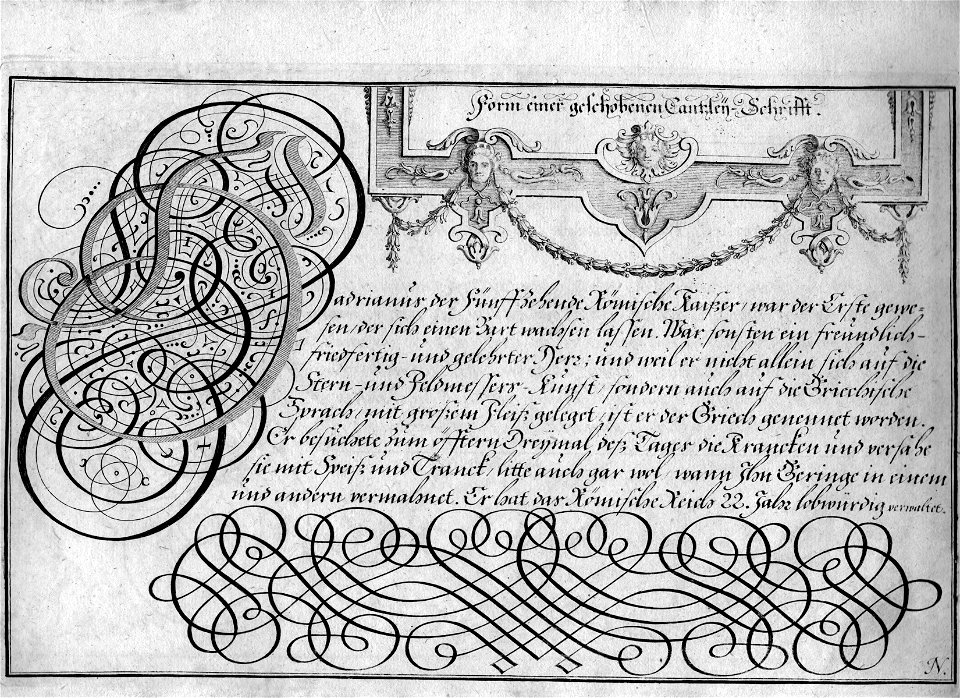 Form einer geschobenen Cantzley-Schrifft.
Hadrianus der Fünffzehende Römische Kaißer / war der Erste gewe-
sen / der sich einen Bart wachsen lassen. War sonsten ein freundlich-
friedfertig- und gelehrter Herz; und weil er nicht allein sich auf die
Stern- und Feldmessers-Kunst / sondern auch auf die Griechische
Sprach / mit großem Fleiß geleget / ist er der Griech genennet worden.
Er besuchete zum öfftern Dreymal deß Tages die Krancken und versahe
sie mit Speiß und Tranck / litte auch gar wol / wann Ihn Geringe in einem
und andern vermahnet. Er hat das Römische Reich 22. Jahr lobwürdig verwaltet.
N.